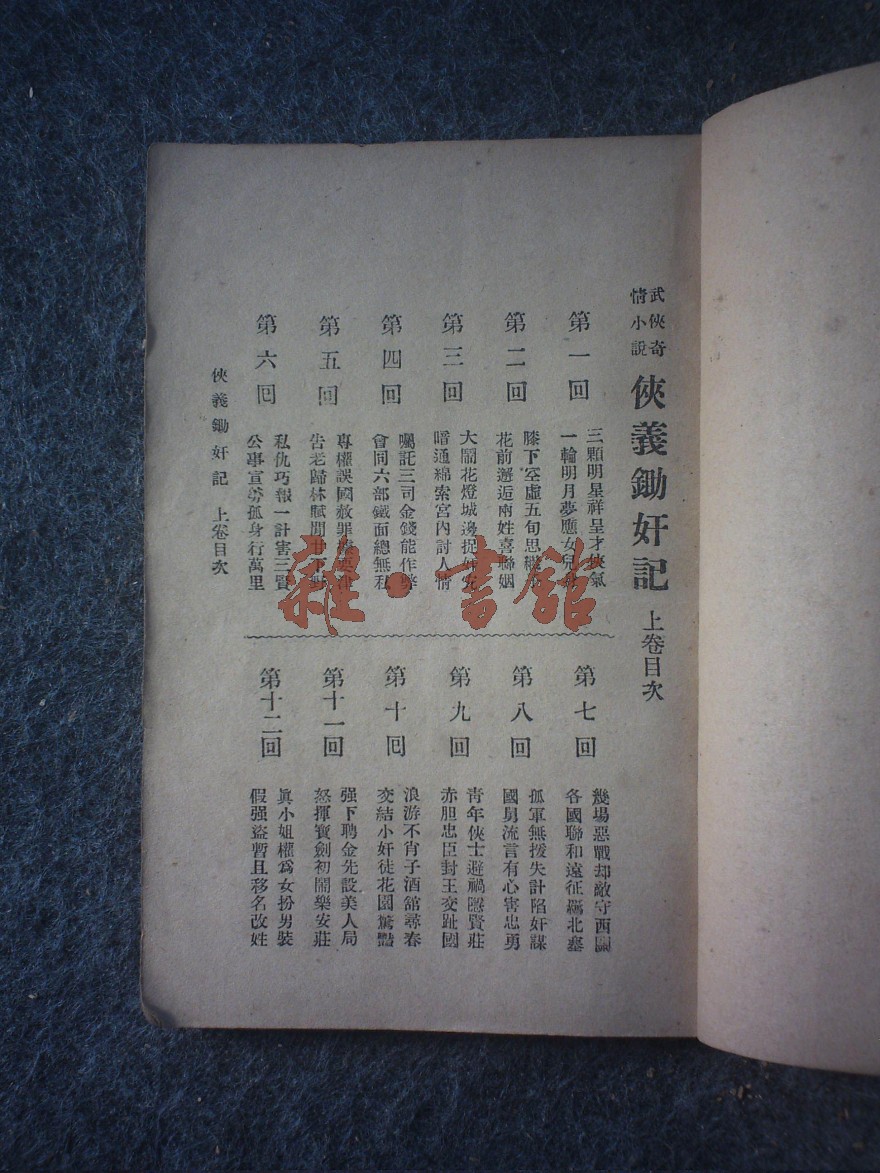 武俠奇情小說
俠義鋤奸記 上卷目次
第一回
三顆明星祥呈才俠氣
一輪明月夢應女兒
第二回
膝下空虛五旬思
花前邂逅兩姓喜聯姻
第三回
大鬧花燈城邊捉
暗通線索宮內討人情
第四回
囑託三司金錢能作弊
會同六部鐵面總無私
第五回
專權誤國赦罪
告老歸林賦閒甘下
第六回
私仇巧報一計害三賢
公事宣勞孤身行萬里
第七回
幾場惡戰却敵守西關
各國聯和遠征羈北塞
第八回
孤軍無援失計陷奸謀
國舅流言有心害忠勇
第九回
靑年俠士避禍隱賢莊
赤胆忠臣封王交趾國
第十回
浪游不肖子酒舘尋春
交結小奸徒花園驚豔
第十一回
强下聘金先設美人局
怒揮寶劍初鬧樂安莊
第十二回
眞小姐權爲女扮男裝
假强盜暫且移名改姓
俠義鋤奸記 上卷目次
雜·書館